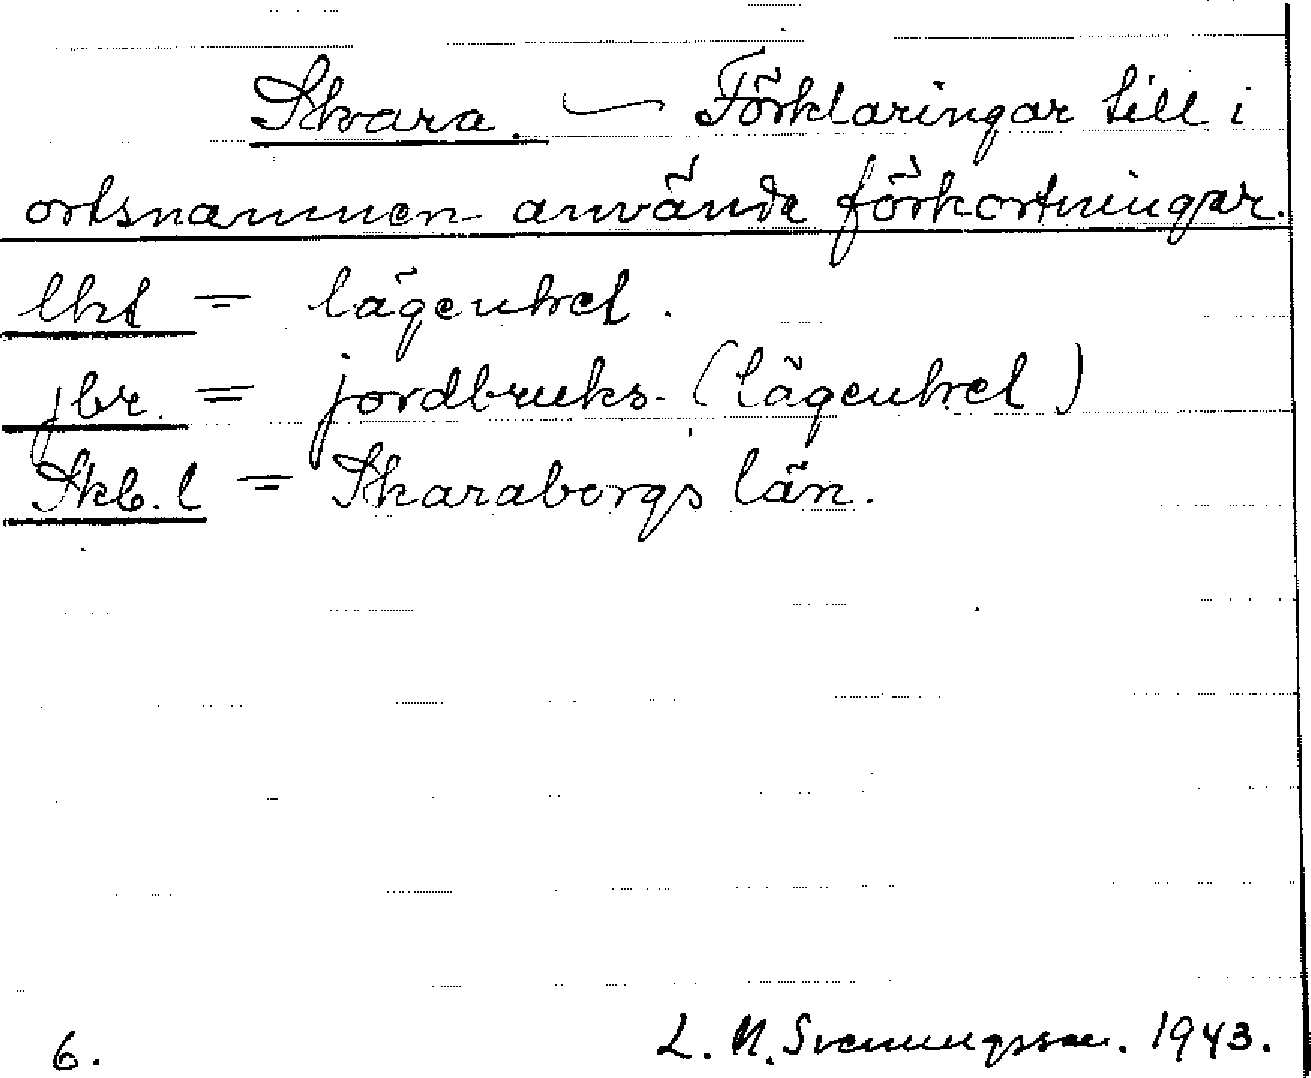 Skvara. — Förklaringar till i
ortsnamnen använda förkortningar.
lht = lägenhet.
jbr. = jordbruks- (lägenhet)
Skb. l = Skaraborgs län.
6. L. N. Svenungsson. 1943.